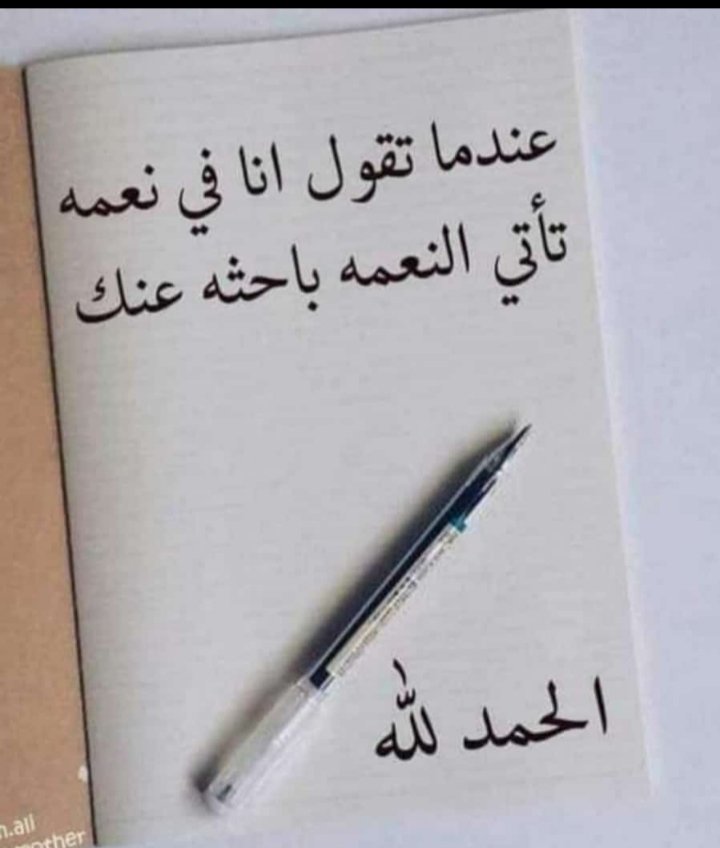 عندما تقول انا في نعمه
تأتي النعمه باحثه عنك
الحمد لله